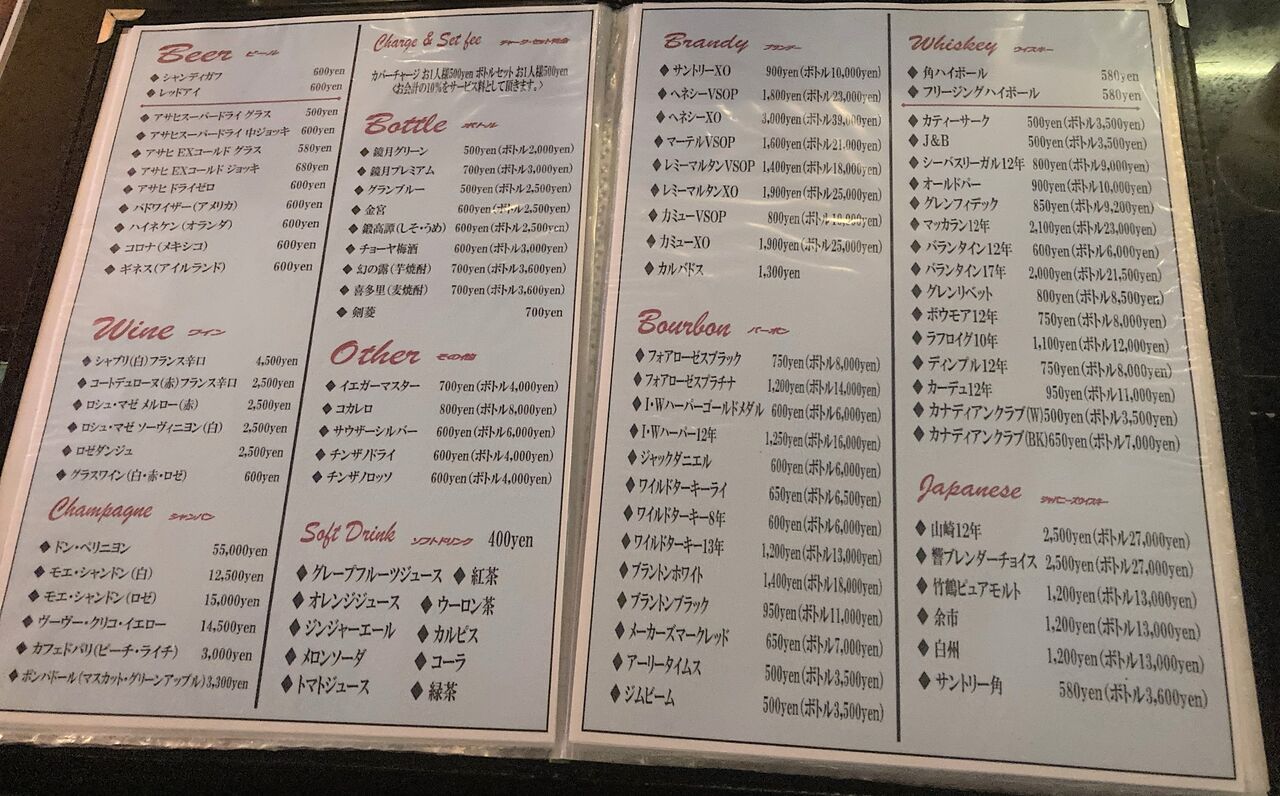 Beer ビール
◆ シャンディガフ 600yen
◆ レッドアイ 600yen
◆ アサヒスーパードライ グラス 500yen
◆ アサヒスーパードライ 中ジョッキ 600yen
◆ アサヒ EXコールド グラス 580yen
◆ アサヒ EXコールド ジョッキ 680yen
◆ アサヒ ドライゼロ 600yen
◆ バドワイザー(アメリカ) 600yen
◆ ハイネケン(オランダ) 600yen
◆ コロナ(メキシコ) 600yen
◆ ギネス(アイルランド) 600yen
Wine ワイン
◆ シャブリ(白)フランス辛口 4,500yen
◆ コートデュローヌ(赤)フランス辛口 2,500yen
◆ ロシュ・マゼ メルロー(赤) 2,500yen
◆ ロシュ・マゼ ソーヴィニヨン(白) 2,500yen
◆ ロゼダンジュ 2,500yen
◆ グラスワイン(白・赤・ロゼ) 600yen
Champagne シャンパン
◆ ドン・ペリニヨン 55,000yen
◆ モエ・シャンドン(白) 12,500yen
◆ モエ・シャンドン(ロゼ) 15,000yen
◆ ヴーヴ・クリコ・イエロー 14,500yen
◆ カフェドパリ(ピーチ・ライチ) 3,000yen
◆ ポンパドール(マスカット・グリーンアップル) 3,300yen
Charge & Set fee チャージ・セット料金
カバーチャージ お1人様500yen ボトルセット お1人様500yen
〈お会計の10%をサービス料として頂きます。〉
Bottle ボトル
◆ 鏡月グリーン 500yen(ボトル2,000yen)
◆ 鏡月プレミアム 700yen(ボトル3,000yen)
◆ グランブルー 500yen(ボトル2,500yen)
◆ 金宮 600yen(ボトル2,500yen)
◆ 鍛高譚(しそ・うめ) 600yen(ボトル2,500yen)
◆ チョーヤ梅酒 600yen(ボトル3,000yen)
◆ 幻の露(芋焼酎) 700yen(ボトル3,600yen)
◆ 喜多里(麦焼酎) 700yen(ボトル3,600yen)
◆ 剣菱 700yen
Other その他
◆ イエガーマスター 700yen(ボトル4,000yen)
◆ コカレロ 800yen(ボトル8,000yen)
◆ サウザーシルバー 600yen(ボトル6,000yen)
◆ チンザノドライ 600yen(ボトル4,000yen)
◆ チンザノロッソ 600yen(ボトル4,000yen)
Soft Drink ソフトドリンク 400yen
◆ グレープフルーツジュース ◆ 紅茶
◆ オレンジジュース ◆ ウーロン茶
◆ ジンジャーエール ◆ カルピス
◆ メロンソーダ ◆ コーラ
◆ トマトジュース ◆ 緑茶
Brandy ブランデー
◆ サントリーXO 900yen(ボトル10,000yen)
◆ ヘネシーVSOP 1,800yen(ボトル23,000yen)
◆ ヘネシーXO 3,000yen(ボトル39,000yen)
◆ マーテルVSOP 1,600yen(ボトル21,000yen)
◆ レミーマルタンVSOP 1,400yen(ボトル18,000yen)
◆ レミーマルタンXO 1,900yen(ボトル25,000yen)
◆ カミューVSOP 800yen(ボトル10,000yen)
◆ カミューXO 1,900yen(ボトル25,000yen)
◆ カルバドス 1,300yen
Bourbon バーボン
◆ フォアローゼスブラック 750yen(ボトル8,000yen)
◆ フォアローゼスプラチナ 1,200yen(ボトル14,000yen)
◆ I・Wハーパーゴールドメダル 600yen(ボトル6,000yen)
◆ I・Wハーパー12年 1,250yen(ボトル16,000yen)
◆ ジャックダニエル 600yen(ボトル6,000yen)
◆ ワイルドターキーライ 650yen(ボトル6,500yen)
◆ ワイルドターキー8年 600yen(ボトル6,000yen)
◆ ワイルドターキー13年 1,200yen(ボトル13,000yen)
◆ ブラントンホワイト 1,400yen(ボトル18,000yen)
◆ ブラントンブラック 950yen(ボトル11,000yen)
◆ メーカーズマークレッド 650yen(ボトル7,000yen)
◆ アーリータイムス 500yen(ボトル3,500yen)
◆ ジムビーム 500yen(ボトル3,500yen)
Whiskey ウイスキー
◆ 角ハイボール 580yen
◆ フリージングハイボール 580yen
◆ カティーサーク 500yen(ボトル3,500yen)
◆ J&B 500yen(ボトル3,500yen)
◆ シーバスリーガル12年 800yen(ボトル9,000yen)
◆ オールドパー 900yen(ボトル10,000yen)
◆ グレンフィデック 850yen(ボトル9,200yen)
◆ マッカラン12年 2,100yen(ボトル23,000yen)
◆ バランタイン12年 600yen(ボトル6,000yen)
◆ バランタイン17年 2,000yen(ボトル21,500yen)
◆ グレンリベット 800yen(ボトル8,500yen)
◆ ボウモア12年 750yen(ボトル8,000yen)
◆ ラフロイグ10年 1,100yen(ボトル12,000yen)
◆ ディンプル12年 750yen(ボトル8,000yen)
◆ カーデュ12年 950yen(ボトル11,000yen)
◆ カナディアンクラブ(W)500yen(ボトル3,500yen)
◆ カナディアンクラブ(BK)650yen(ボトル7,000yen)
Japanese ジャパニーズウイスキー
◆ 山崎12年 2,500yen(ボトル27,000yen)
◆ 響ブレンダーチョイス 2,500yen(ボトル27,000yen)
◆ 竹鶴ピュアモルト 1,200yen(ボトル13,000yen)
◆ 余市 1,200yen(ボトル13,000yen)
◆ 白州 1,200yen(ボトル13,000yen)
◆ サントリー角 580yen(ボトル3,600yen)